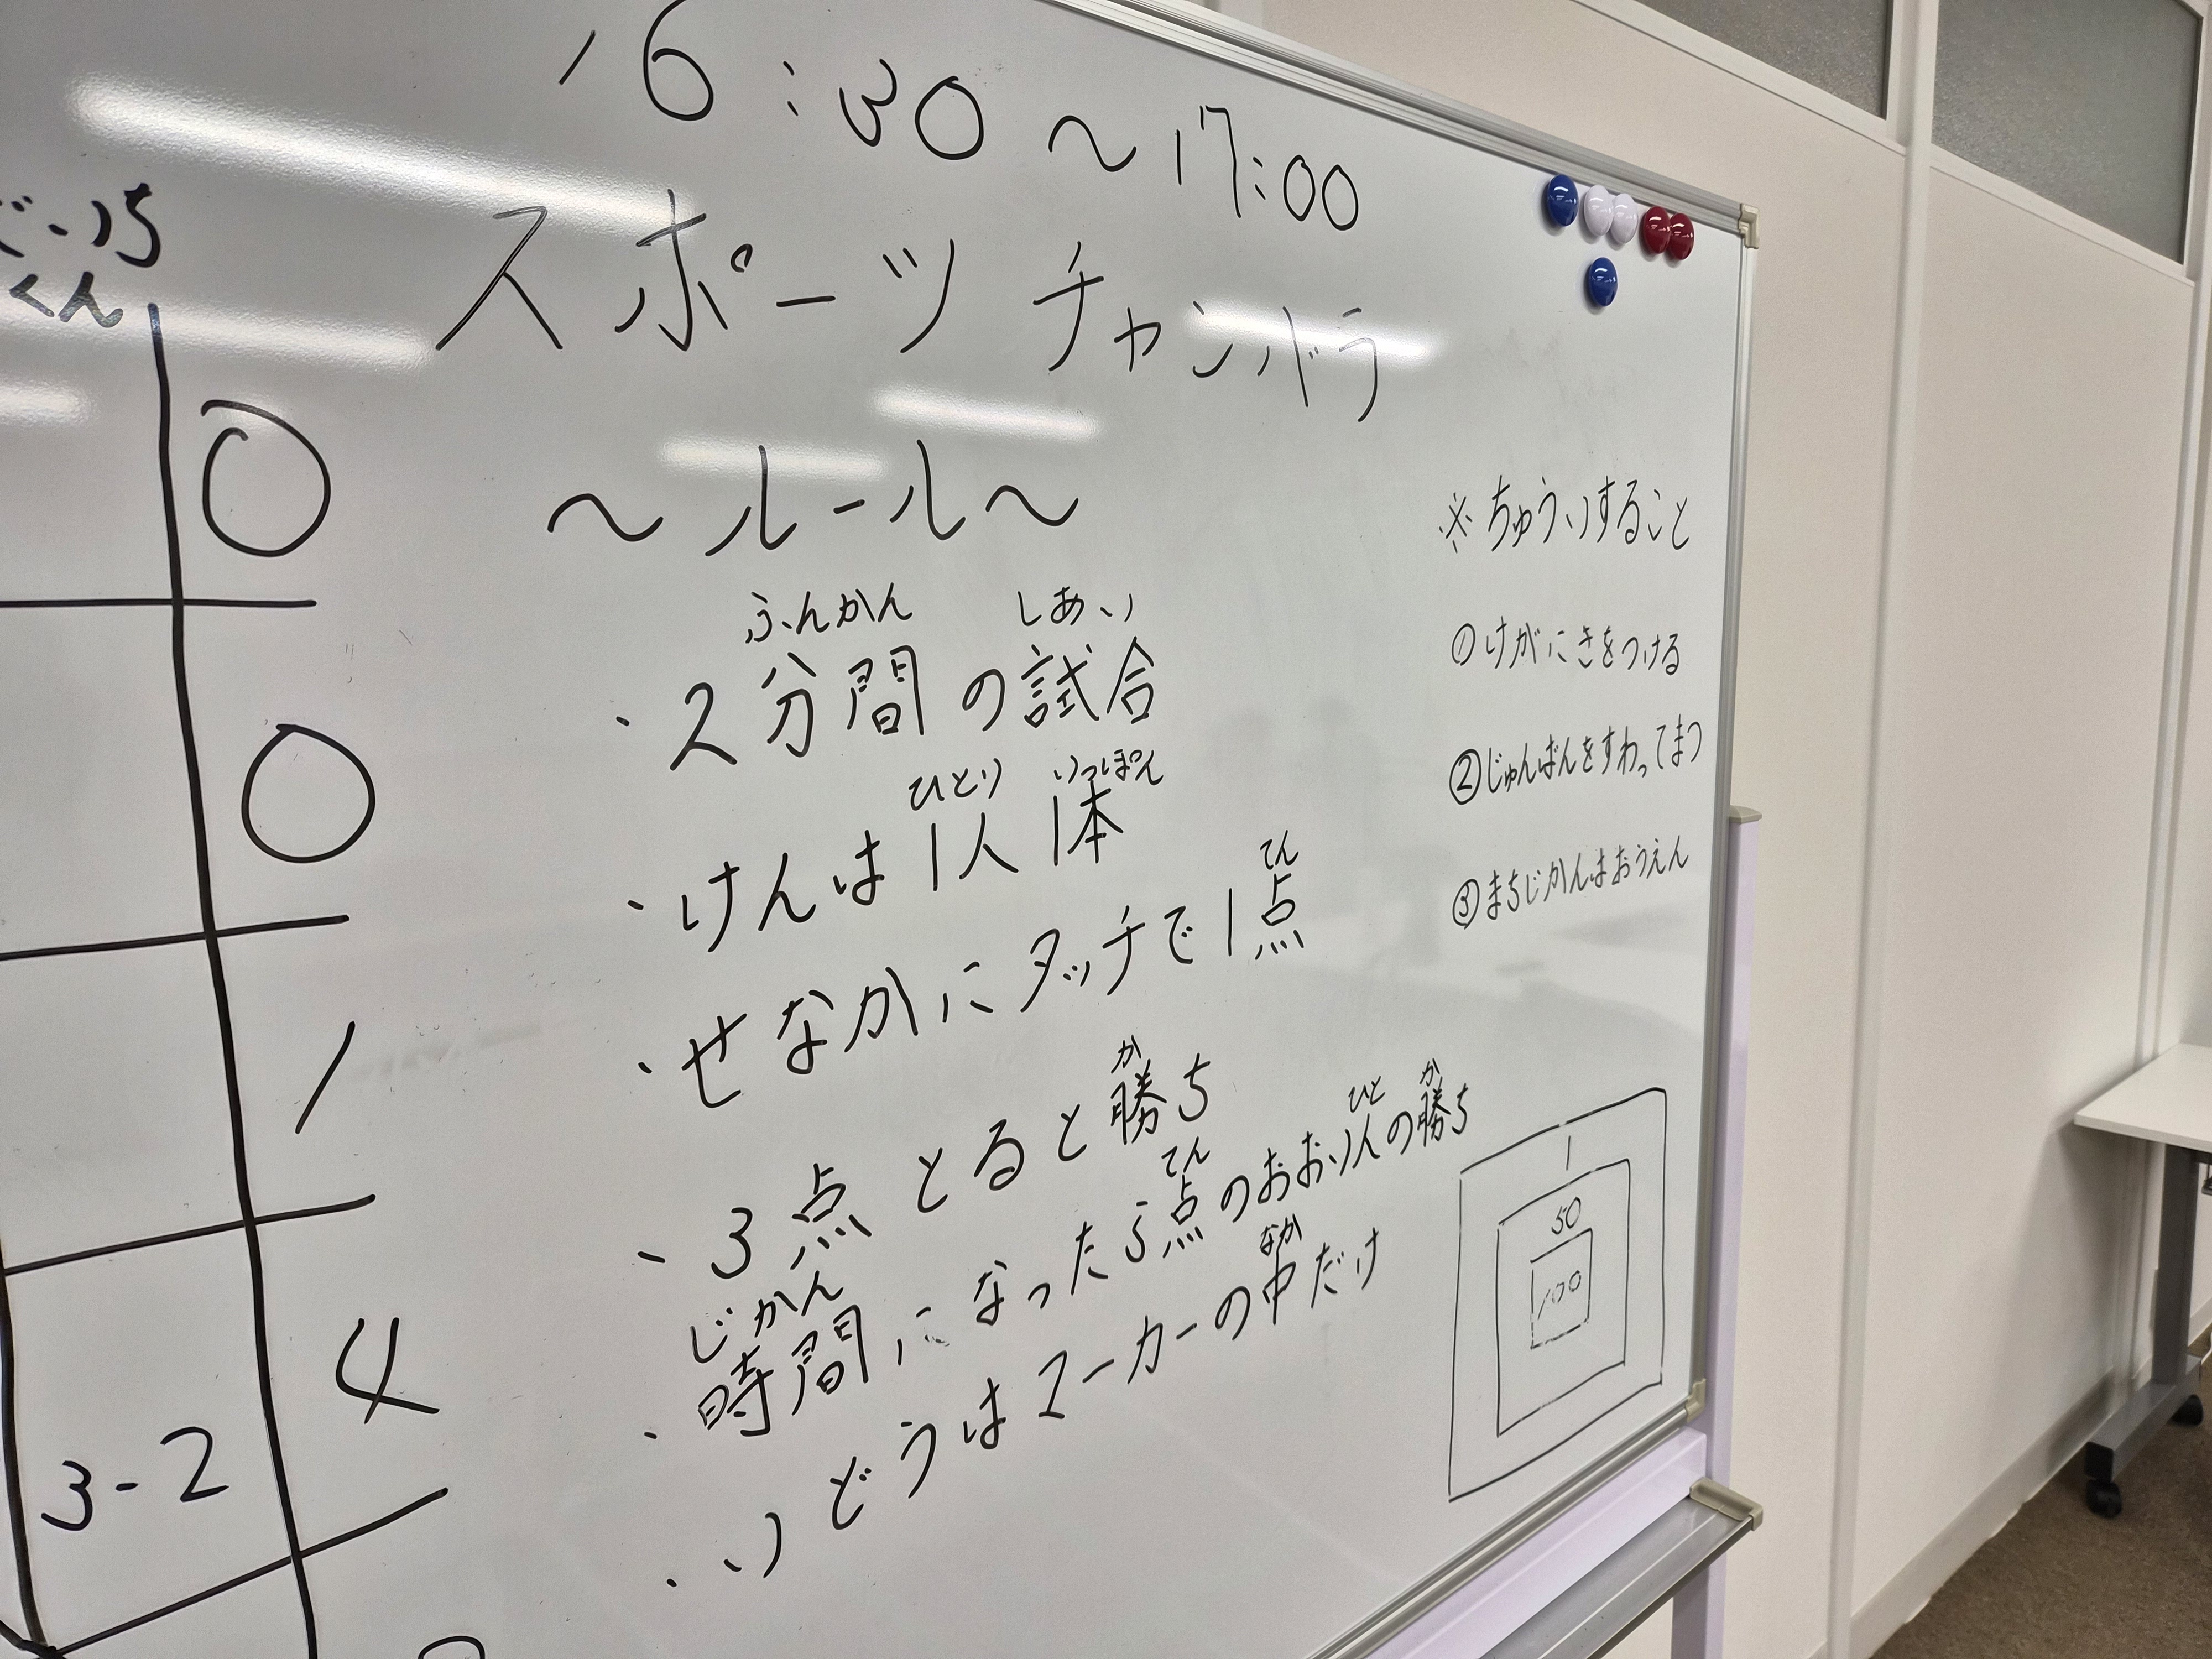 16:30～17:00
スポーツチャンバラ
～ルール～
ふんかん しあい
・2分間の試合
ひとり いっぽん
・けんは1人1本
てん
・せなかにタッチで1点
か
・3点とると勝ち
じかん てん ひと か
・時間になったら点のおおい人の勝ち
なか
・いどうはマーカーの中だけ
※ちゅういすること
①けがにきをつける
②じゅんばんをすわってまつ
③まちじかんはおうえん
1
50
100
くん
0
0
1
3-2 4